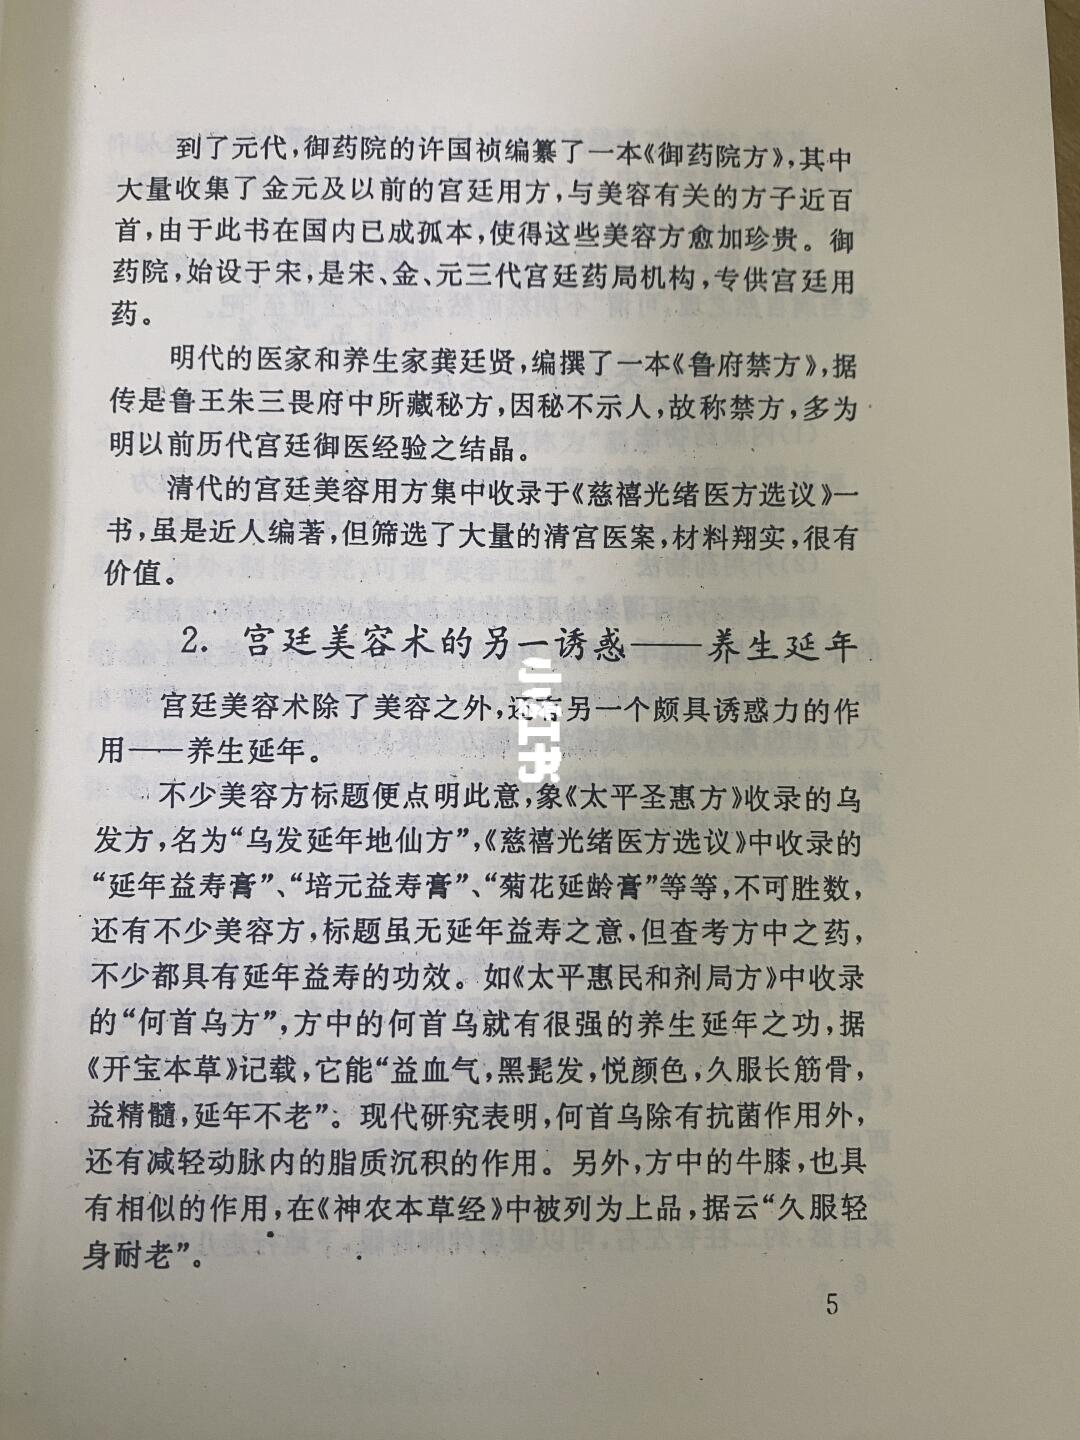 到了元代，御药院的许国祯编纂了一本《御药院方》，其中
大量收集了金元及以前的宫廷用方，与美容有关的方子近百
首，由于此书在国内已成孤本，使得这些美容方愈加珍贵。御
药院，始设于宋，是宋、金、元三代宫廷药局机构，专供宫廷用
药。
明代的医家和养生家龚廷贤，编撰了一本《鲁府禁方》，据
传是鲁王朱三畏府中所藏秘方，因秘不示人，故称禁方，多为
明以前历代宫廷御医经验之结晶。
清代的宫廷美容用方集中收录于《慈禧光绪医方选议》一
书，虽是近人编著，但筛选了大量的清宫医案，材料翔实，很有
价值。
2. 宫廷美容术的另一诱惑——养生延年
宫廷美容术除了美容之外，还有另一个颇具诱惑力的作
用——养生延年。
不少美容方标题便点明此意，象《太平圣惠方》收录的乌
发方，名为“乌发延年地仙方”，《慈禧光绪医方选议》中收录的
“延年益寿膏”、“培元益寿膏”、“菊花延龄膏”等等，不可胜数，
还有不少美容方，标题虽无延年益寿之意，但查考方中之药，
不少都具有延年益寿的功效。如《太平惠民和剂局方》中收录
的“何首乌方”，方中的何首乌就有很强的养生延年之功，据
《开宝本草》记载，它能“益血气，黑髭发，悦颜色，久服长筋骨，
益精髓，延年不老”。现代研究表明，何首乌除有抗菌作用外，
还有减轻动脉内的脂质沉积的作用。另外，方中的牛膝，也具
有相似的作用，在《神农本草经》中被列为上品，据云“久服轻
身耐老”。
5